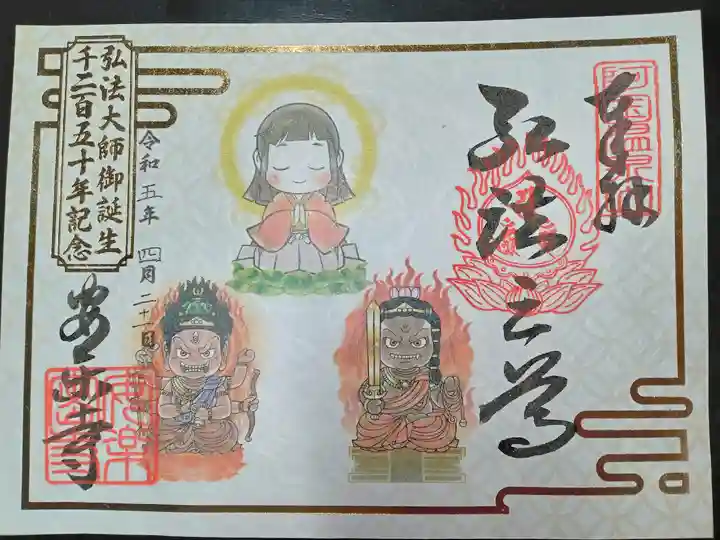 奉拝
弘法三尊
弘法大師御誕生
千二百五十年記念
令和五年 四月二十一日
安楽寺